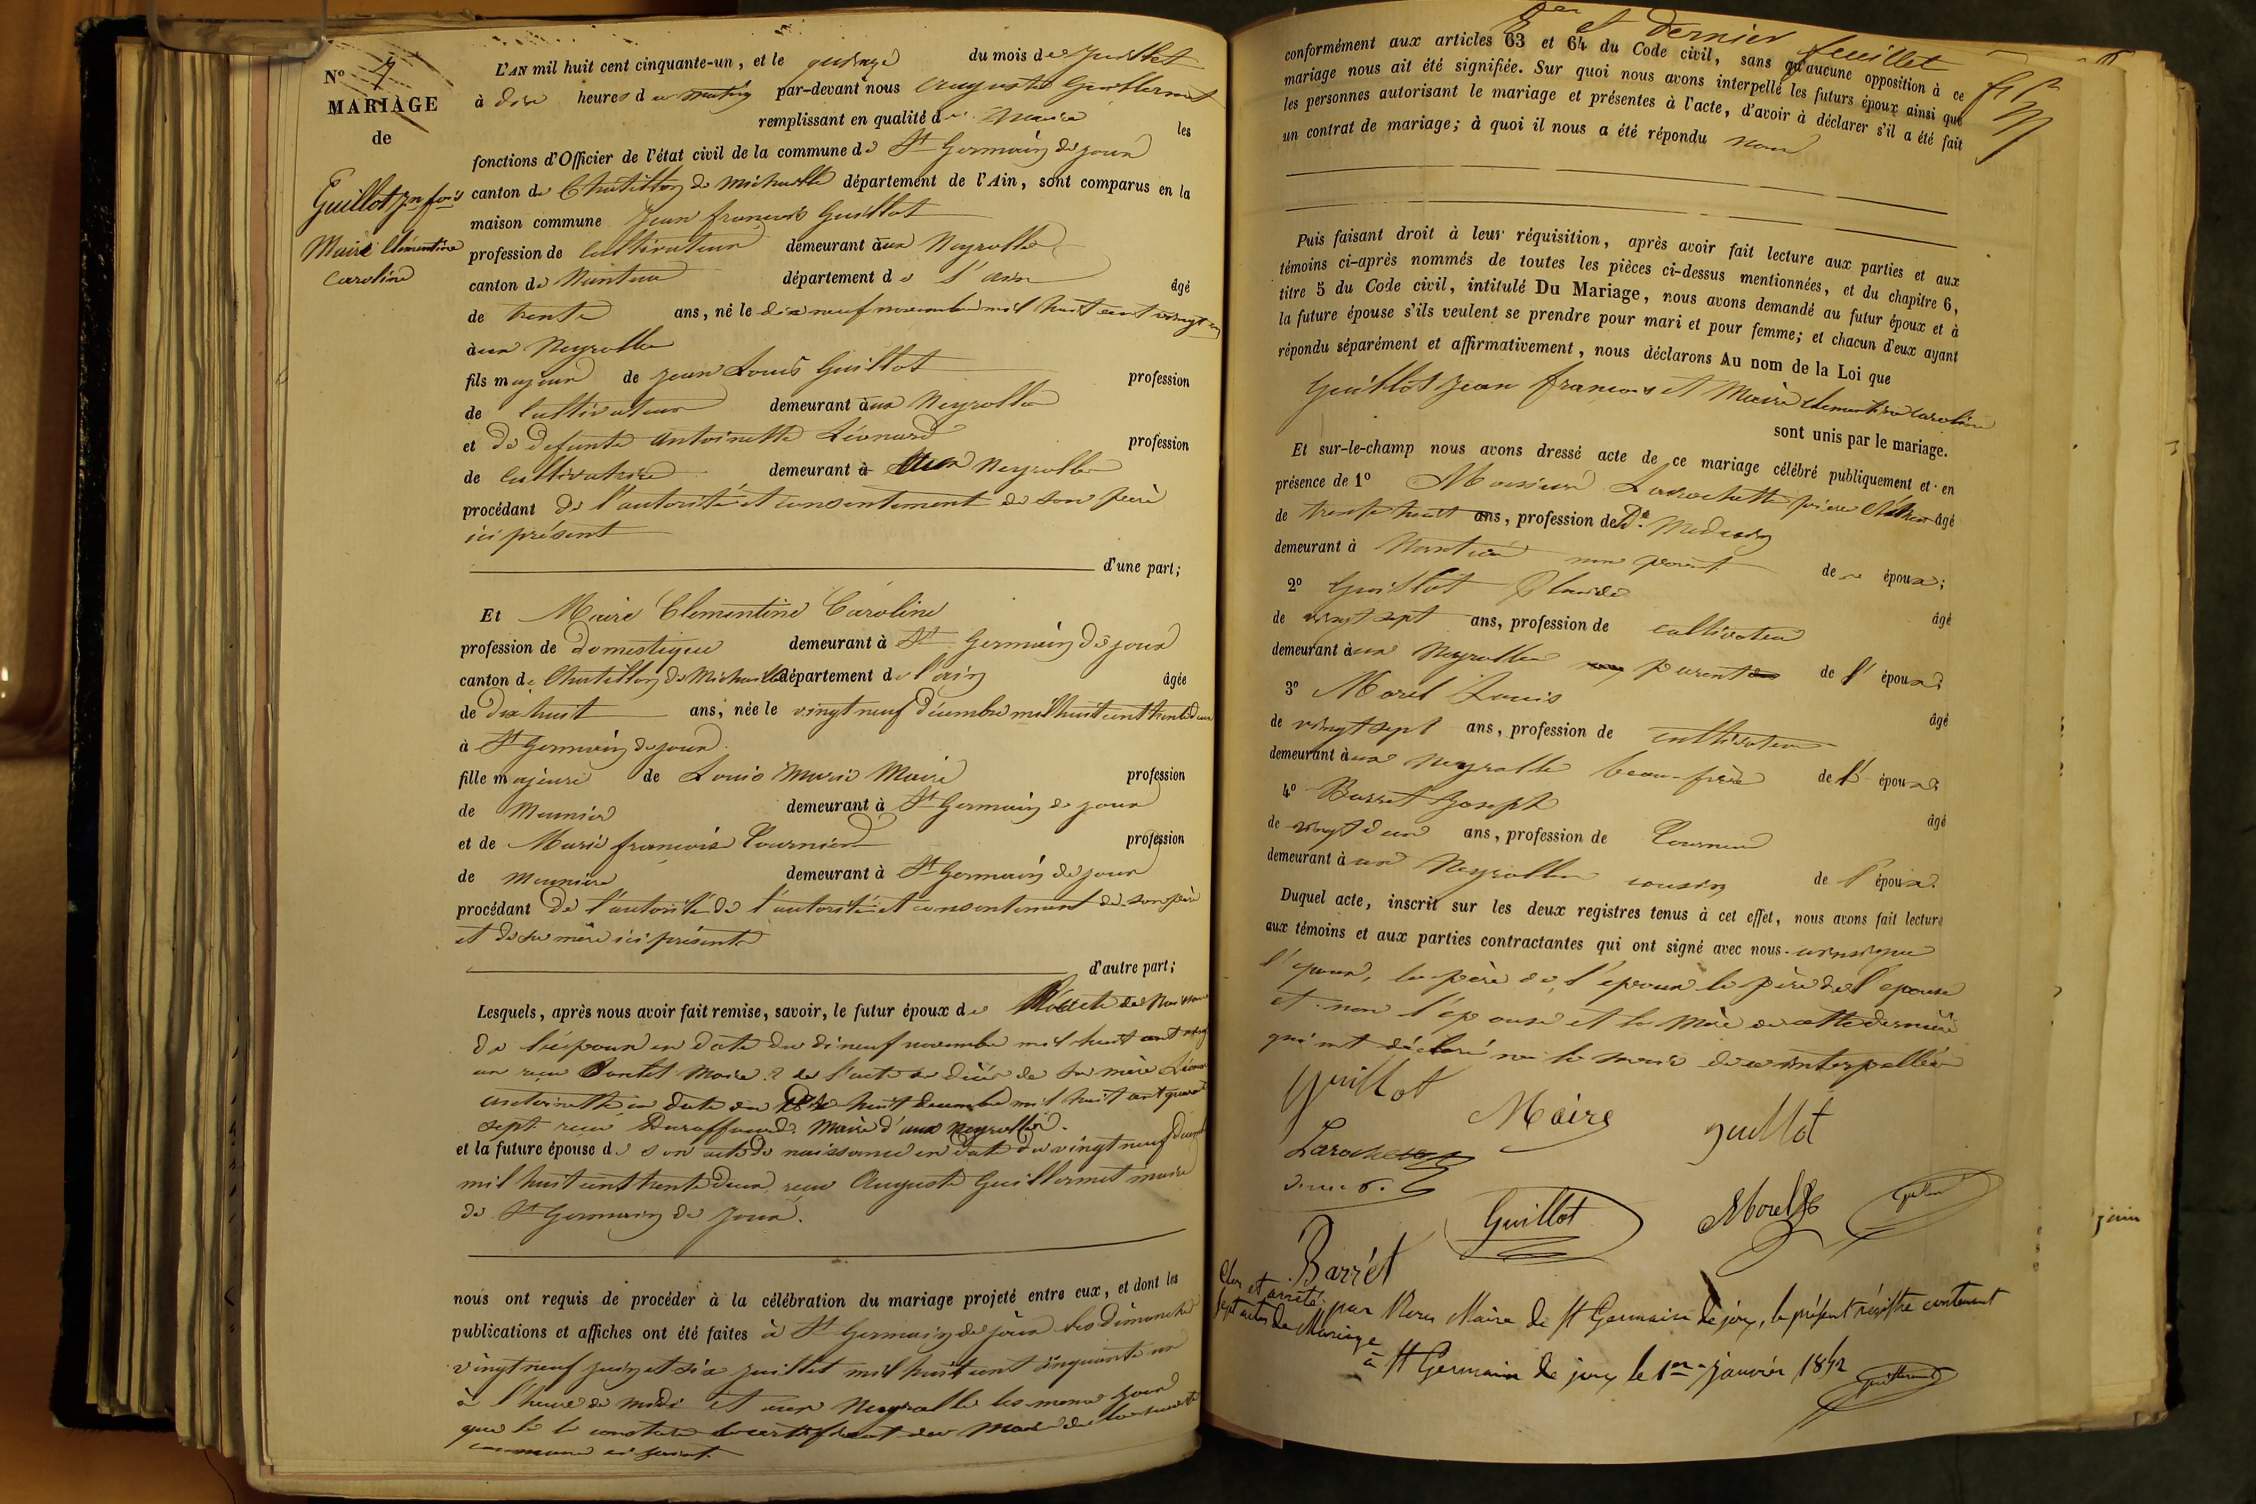 N° 7
MARIAGE
de
Guillot Jn fois
Maire Clémentine
Caroline
L'AN mil huit cent cinquante-un, et le quinze du mois de Juillet
à dix heures du matin par-devant nous Auguste Guillermet
remplissant en qualité de Maire les
fonctions d'Officier de l'état civil de la commune de St Germain de joux
canton de Chatillon de Michaille département de l'Ain, sont comparus en la
maison commune Jean françois Guillot
profession de cultivateur demeurant aux Neyrolles
canton de Nantua département de l'ain âgé
de trente ans, né le dix neuf novembre mil huit cent vingt un
aux Neyrolles
fils majeur de Jean Louis Guillot profession
de cultivateur demeurant aux Neyrolles
et de defunte Antoinette Léonard profession
de cultivatrice demeurant à aux Neyrolles
procédant de l'autorité et consentement de son père
ici présent
d'une part;
Et Maire Clementine Caroline
profession de domestique demeurant à St Germain de joux
canton de Chatillon de Michaille département de l'ain âgée
de dix huit ans, née le vingt neuf décembre mil huit cent trente deux
à St Germain de joux
fille majeure de Louis Marie Maire profession
de Meunier demeurant à St Germain de joux
et de Marie françoise Tournier profession
de meuniere demeurant à St Germain de joux
procédant de l'autorité de l'autorité et consentement de son père
et de sa mère ici présents
d'autre part;
Lesquels, après nous avoir fait remise, savoir, le futur époux de
de l'époux en date du dix neuf novembre mil huit cent vingt
un reçu maire 2 de l'acte de décès de sa mère Léonard
antoinette en date du huit decembre mil huit cent quarante
sept reçu maire d'aux neyrolles.
et la future épouse de son acte de naissance en date du vingt neuf decembre
mil huit cent trente deux reçu Auguste Guillermet maire
de St Germain de joux.
nous ont requis de procéder à la célébration du mariage projeté entre eux, et dont les
publications et affiches ont été faites à St Germain de joux les dimanches
vingt neuf juin et six juillet mil huit cent cinquante un
à l'heure de midi et aux Neyrolles les meme jour
que le constate le certificat du Maire de la susdite
commune ci joint.
8er et dernier feuillet
conformément aux articles 63 et 64 du Code civil, sans qu'aucune opposition à ce
mariage nous ait été signifiée. Sur quoi nous avons interpellé les futurs époux ainsi que
les personnes autorisant le mariage et présentes à l'acte, d'avoir à déclarer s'il a été fait
un contrat de mariage; à quoi il nous a été répondu non
Puis faisant droit à leur réquisition, après avoir fait lecture aux parties et aux
témoins ci-après nommés de toutes les pièces ci-dessus mentionnées, et du chapitre 6,
titre 5 du Code civil, intitulé Du Mariage, nous avons demandé au futur époux et à
la future épouse s'ils veulent se prendre pour mari et pour femme; et chacun d'eux ayant
répondu séparément et affirmativement, nous déclarons Au nom de la Loi que
Guillot Jean francois et Maire clementine caroline
sont unis par le mariage.
Et sur-le-champ nous avons dressé acte de ce mariage célébré publiquement et en
présence de 1° Monsieur Larochette âgé
de trente huit ans, profession de Dr Medecin
demeurant à Nantua non parent de époux;
2° Guillot Claude âgé
de vingt sept ans, profession de cultivateur
demeurant aux Neyrolles parent de l'époux;
3° Morel Louis âgé
de vingt sept ans, profession de cultivateur
demeurant aux Neyrolles beau-frère de l'époux;
4° Barret Joseph âgé
de vingt deux ans, profession de Tourneur
demeurant aux Neyrolles cousin de l'époux.
Duquel acte, inscrit sur les deux registres tenus à cet effet, nous avons fait lecture
aux témoins et aux parties contractantes qui ont signé avec nous ainsi que
l'époux, le père de l'époux le père de l'epouse
et non l'épouse et la Mère de cette dernière
qui ont déclaré ne le savoir de ce interpellées
Guillot
Maire
guillot
Larochette
Guillot
Morel
Barrét
Clos et arreté par Nous Maire de St Germain de joux, le présent régistre contenant
Sept actes de Mariage
à St Germain de joux le 1er janvier 1852
Guillermet
juin